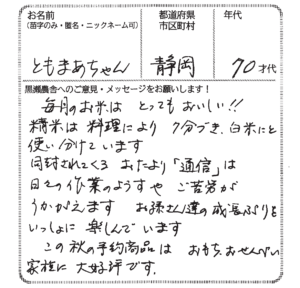 お名前
(苗字のみ・匿名・ニックネーム可)
都道府県
市区町村
年代
ともまあちゃん
静岡
70才代
黒瀬農舎へのご意見・メッセージをお願いします!
毎月のお米は とってもおいしい!!
精米は料理により 7分づき、白米にと
使い分けています
同封されてくる おたより「通信」は
日々の作業のようすや ご苦労が
うかがえます お孫さん達の成長ぶりを
いっしょに楽しんでいます
この秋の予約商品は おもち、おせんべい
家族に大好評です.